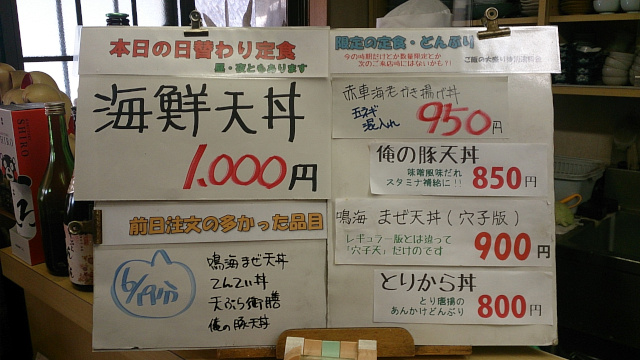 本日の日替わり定食
昼・夜ともあります
海鮮天丼
1,000円
前日注文の多かった品目
鳴海まぜ天丼
てんてい丼
天ぷら御膳
俺の豚天丼
限定の定食・どんぶり
今の時期だけとか数量限定とか
次のご来店時にはないかも?!
ご飯の大盛りは別途料金
赤車海老かき揚げ丼
玉ネギ
混入れ
950円
俺の豚天丼
味噌風味だれ
スタミナ補給に!!
850円
鳴海 まぜ天丼(穴子版)
レギュラー版とは違って
「穴子天」だけのです
900円
とりから丼
とり唐揚の
あんかけどんぶり
800円
SHIRO